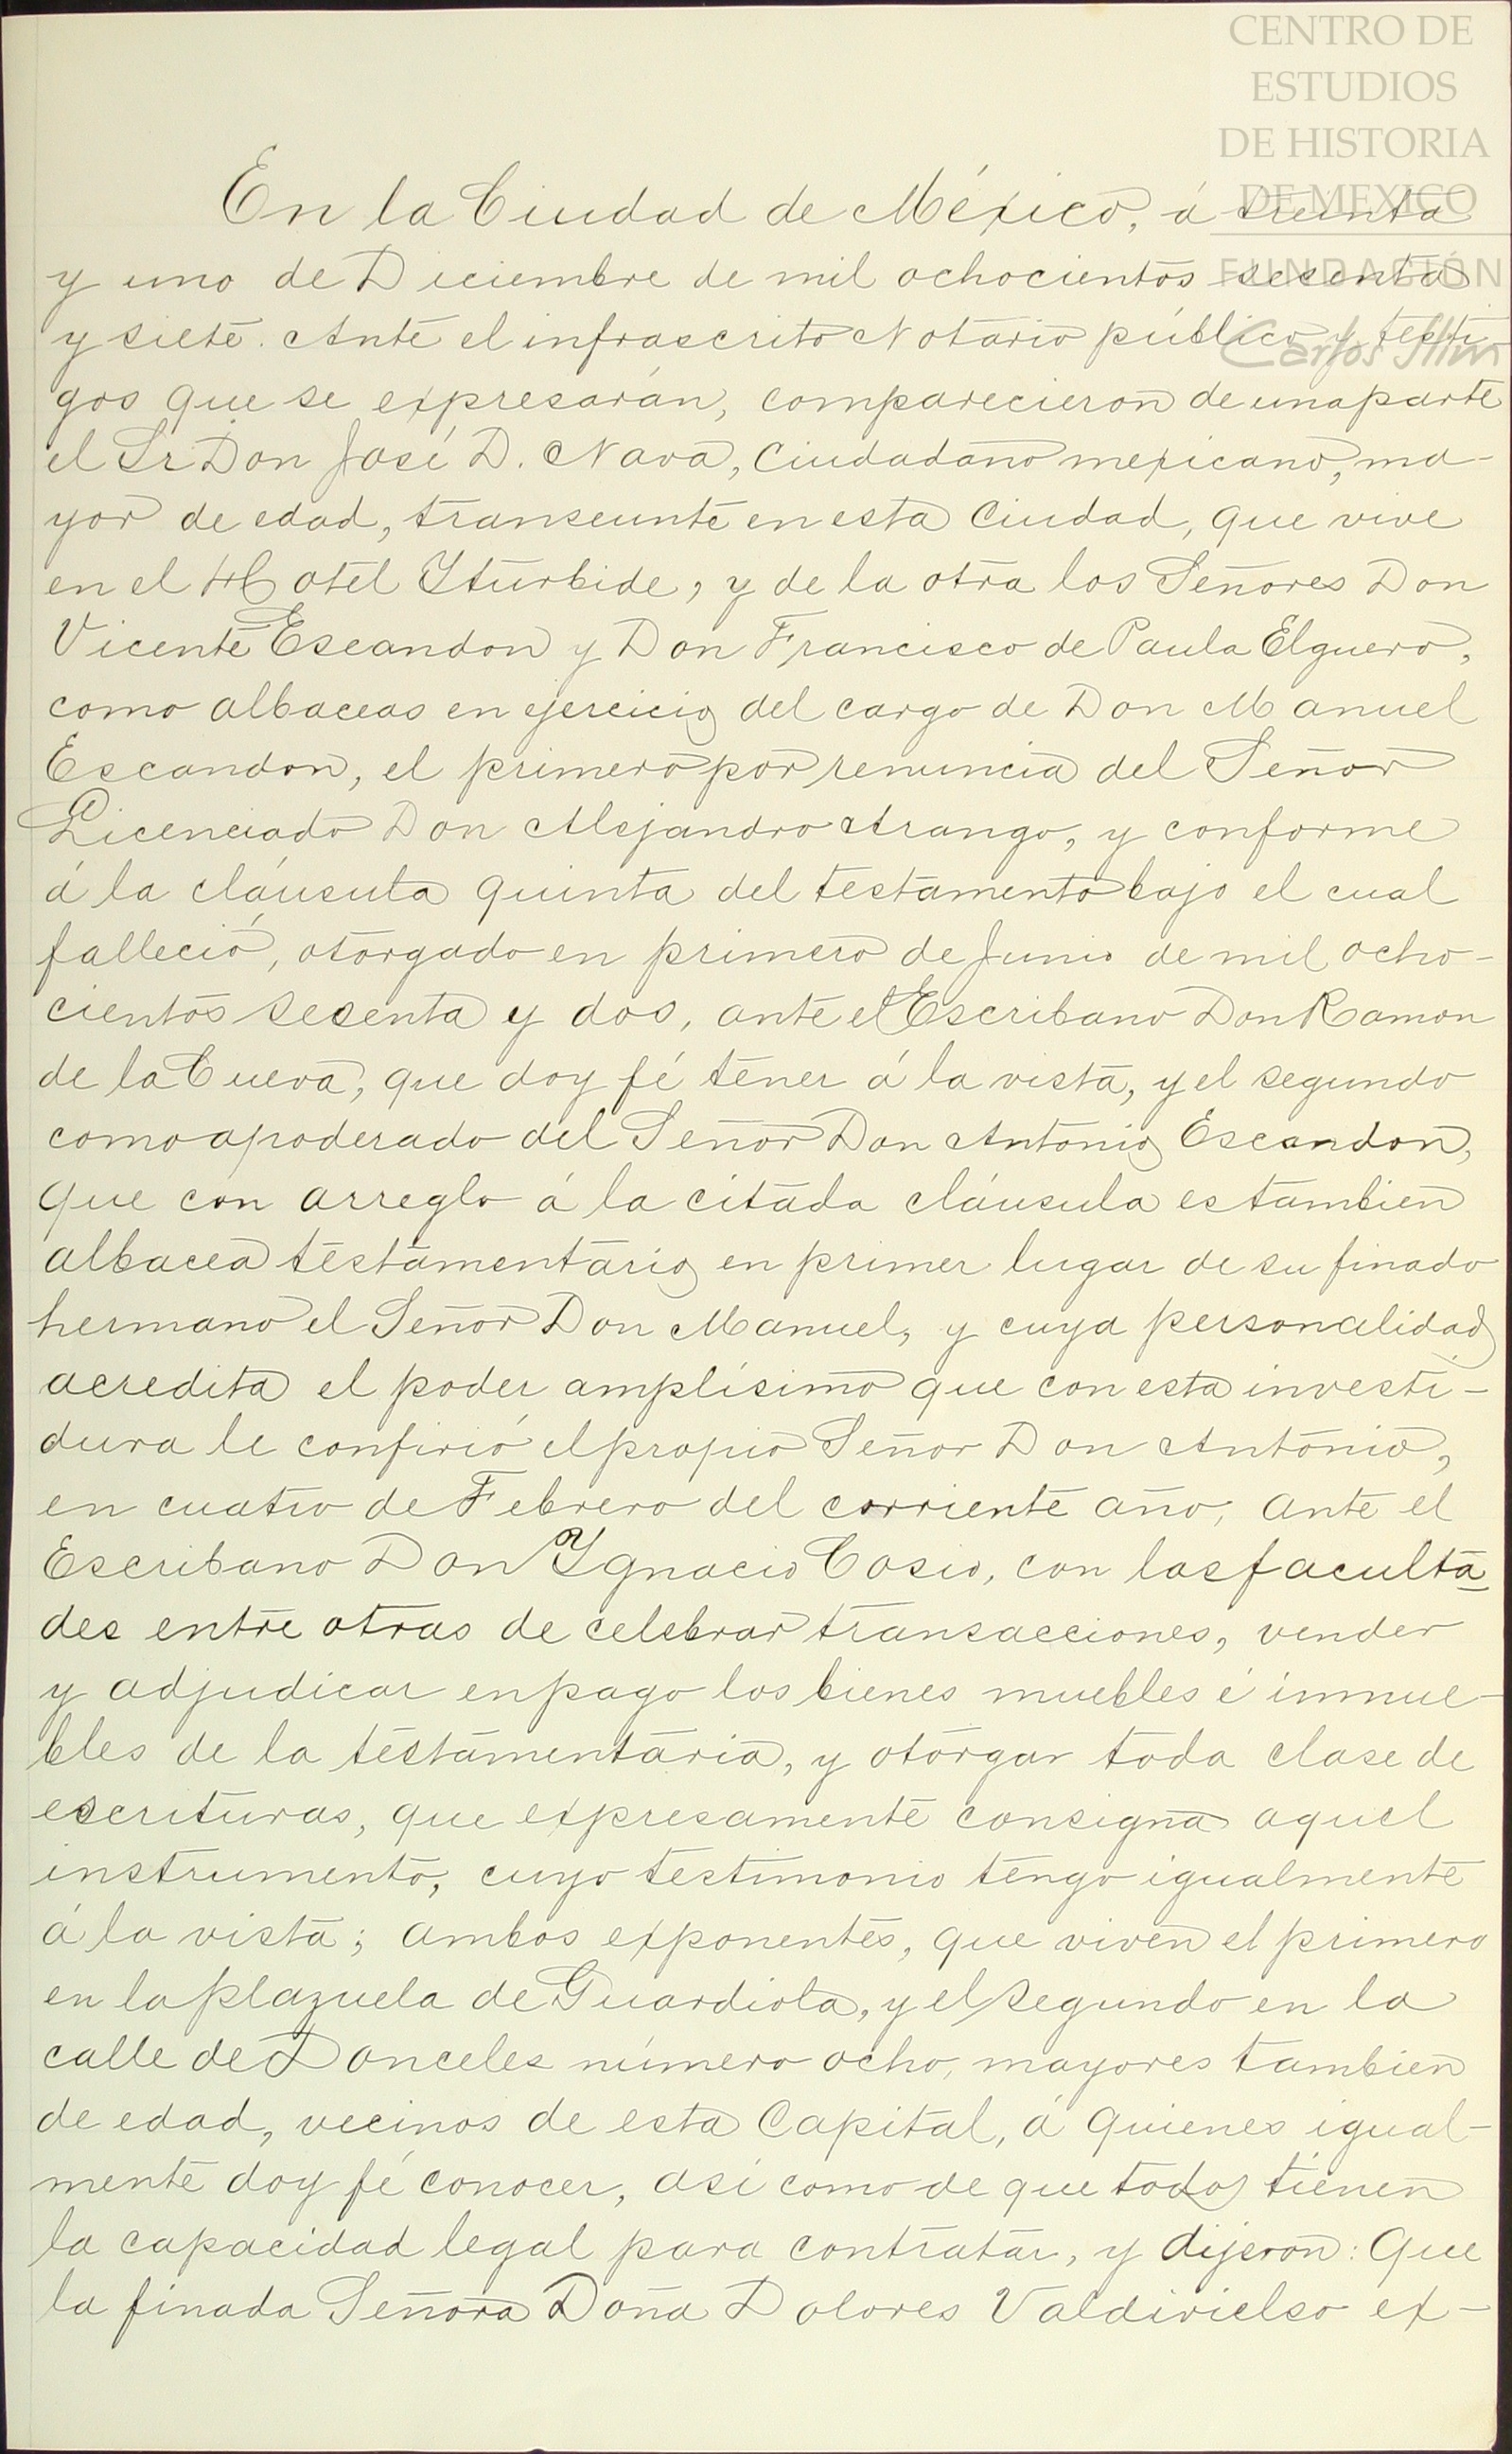 CENTRO DE
ESTUDIOS
DE HISTORIA
DE MEXICO
FUNDACIÓN
Carlos Slim
En la Ciudad de México, á treinta
y uno de Diciembre de mil ochocientos sesenta
y siete. Ante el infrascrito Notario público y testi-
gos que se expresarán, comparecieron de una parte
el Sr Don José D. Nava, Ciudadano mexicano, ma-
yor de edad, transeunte en esta Ciudad, que vive
en el Hotel Yturbide, y de la otra los Señores Don
Vicente Escandon y Don Francisco de Paula Elguero,
como albaceas en ejercicio del cargo de Don Manuel
Escandon, el primero por renuncia del Señor
Licenciado Don Alejandro Arango, y conforme
á la cláusula quinta del testamento bajo el cual
falleció, otorgado en primero de Junio de mil ocho-
cientos sesenta y dos, ante el Escribano Don Ramon
de la Cueva, que doy fé tener á la vista, y el segundo
como apoderado del Señor Don Antonio Escandon,
que con arreglo á la citada cláusula es tambien
albacea testamentario en primer lugar de su finado
hermano el Señor Don Manuel, y cuya personalidad
acredita el poder amplísimo que con esta investi-
dura le confirió el propio Señor Don Antonio,
en cuatro de Febrero del corriente año, ante el
Escribano Don Ygnacio Cosio, con las faculta-
des entre otras de celebrar transacciones, vender
y adjudicar en pago los bienes muebles é inmue-
bles de la testamentaria, y otorgar toda clase de
escrituras, que expresamente consigna aquel
instrumento, cuyo testimonio tengo igualmente
á la vista; ambos exponentes, que viven el primero
en la plazuela de Guardiola, y el segundo en la
calle de Donceles número ocho, mayores tambien
de edad, vecinos de esta Capital, á quienes igual-
mente doy fé conocer, así como de que todos tienen
la capacidad legal para contratar, y dijeron: Que
la finada Señora Doña Dolores Valdivielso ex-